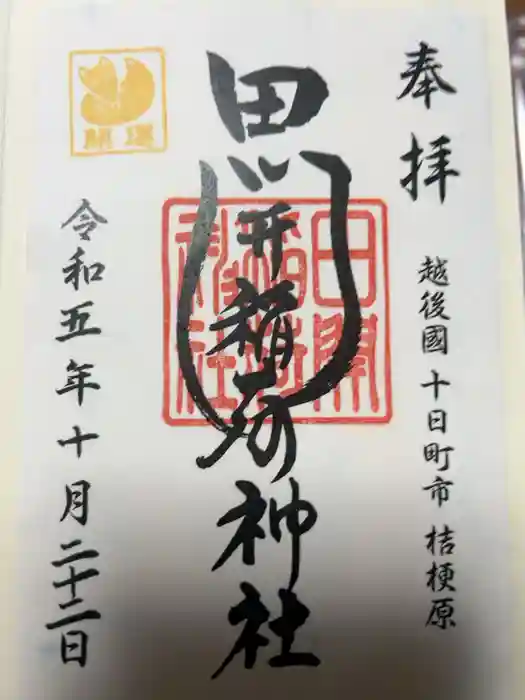 奉拝
越後國 十日町市 桔梗原
田開稲荷神社
令和五年十月二十二日
開運